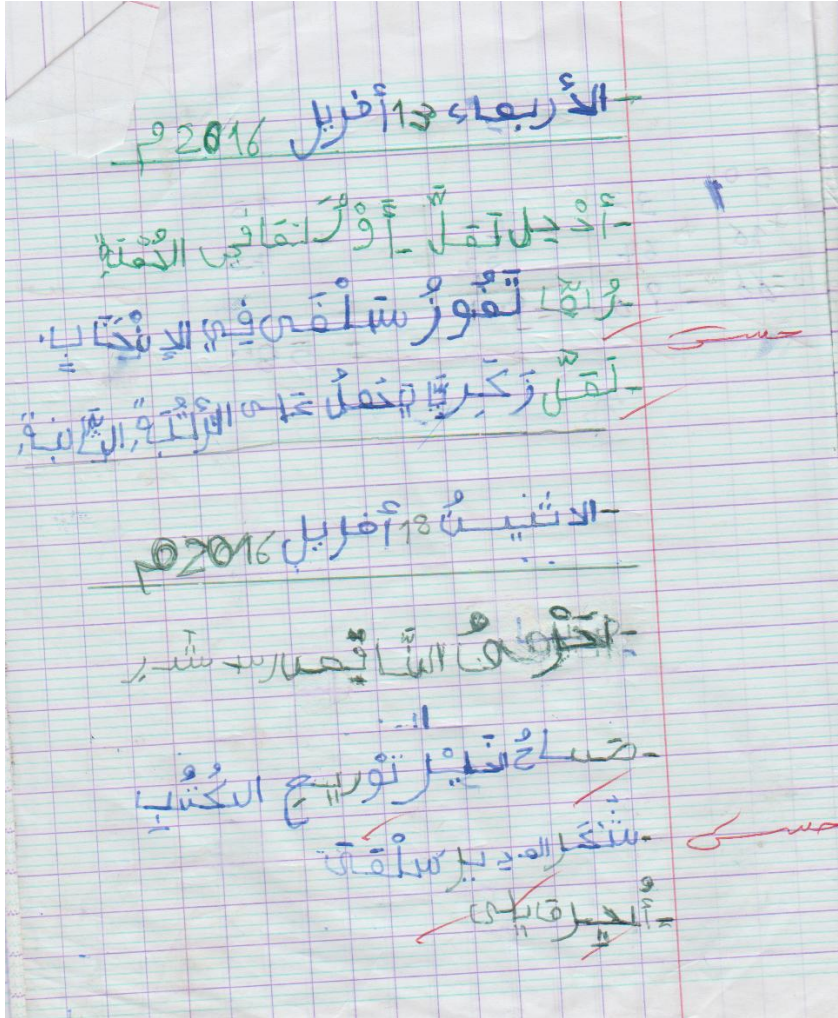 - الأربعاء 13 أفريل 2016 م
- أدخل لعلّ - أو ربّما في الجملة
- ربّما تفوز سلمى في الانتخاب.
حسن
- لعلّ زكريا يحصل على المرتبة الثانية.
- الاثنين 18 أفريل 2016 م
- الحرف النّاقص
- صباح الخير توزيع الكتب
- شكر المدير سلمى
حسن